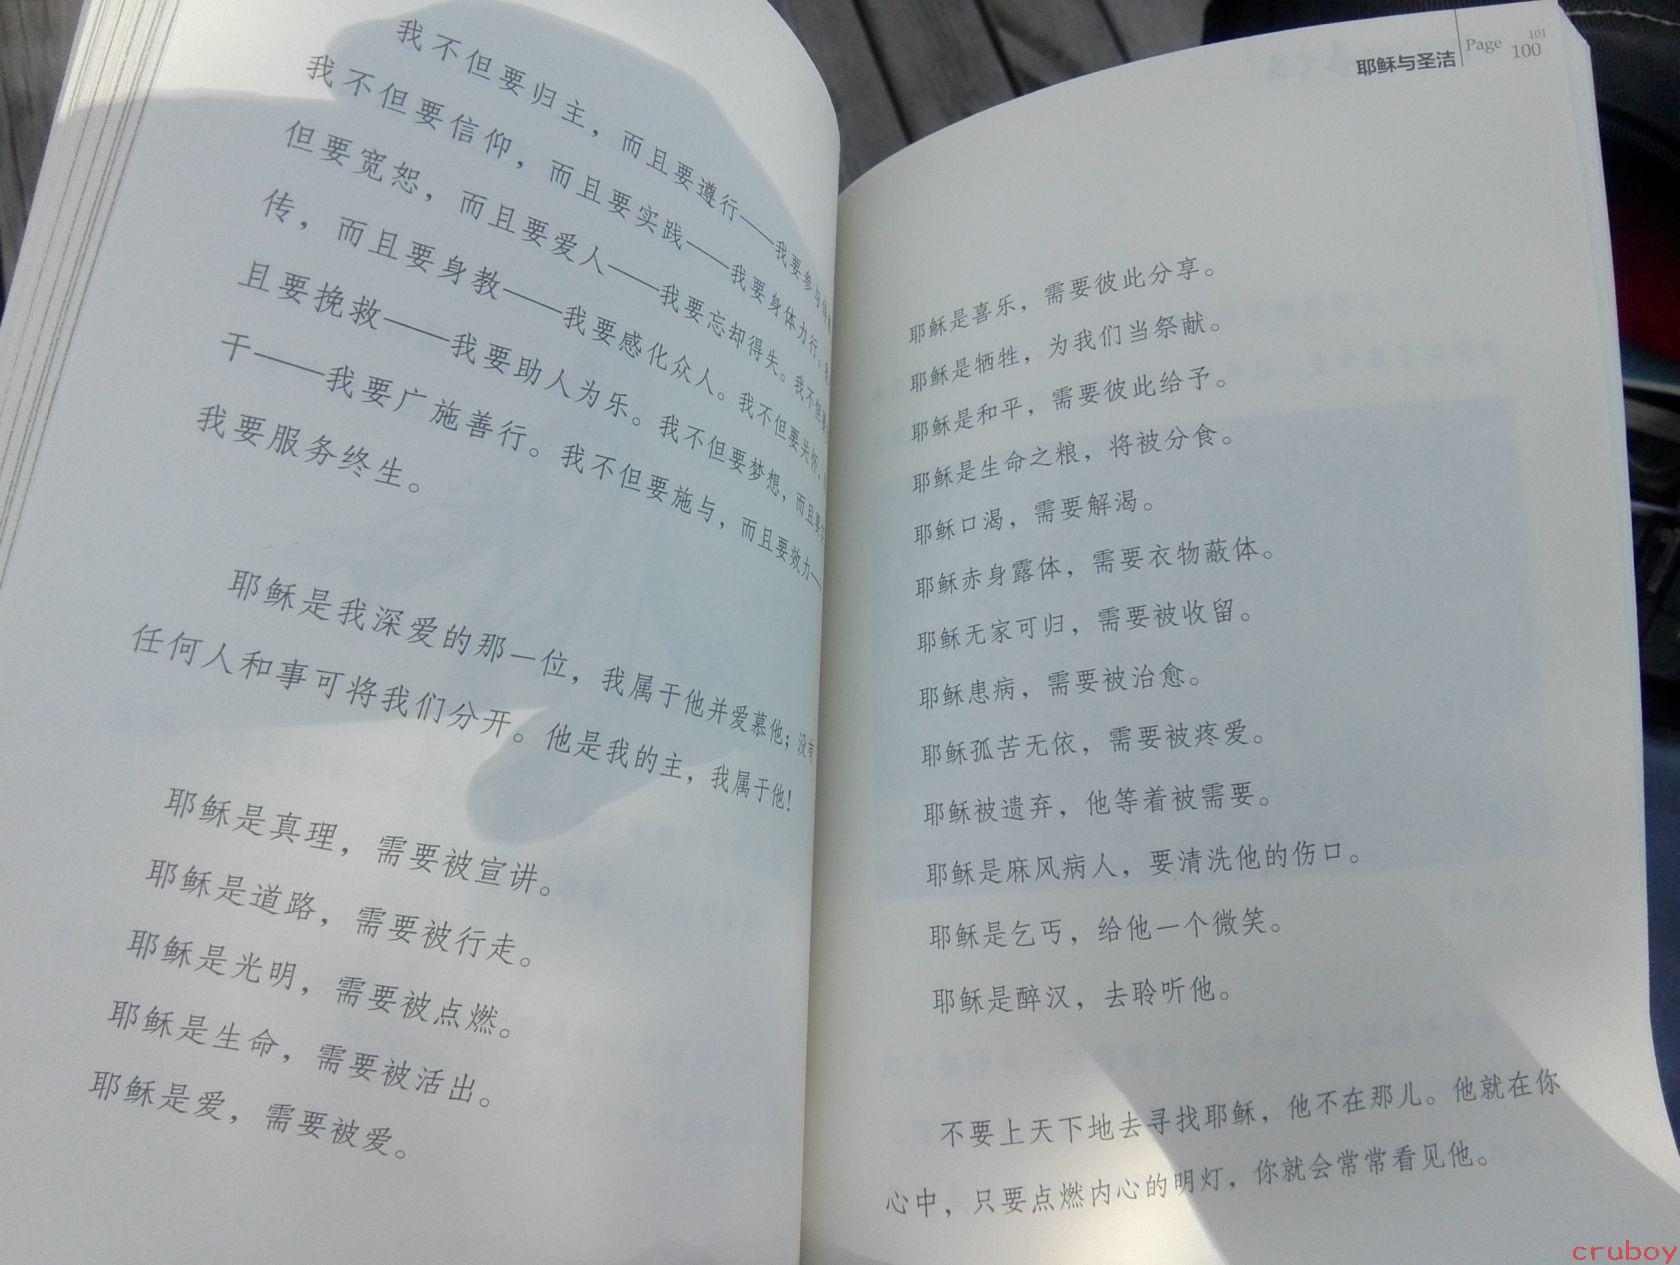 我不但要归主，而且要遵行——我要参与
我不但要信仰，而且要实践——我要身体力行。
但要宽恕，而且要爱人——我要忘却得失。我不但要
传，而且要身教——我要感化众人。我不但要关怀，
且要挽救——我要助人为乐。我不但要梦想，而且要
干——我要广施善行。我不但要施与，而且要效力——
我要服务终生。
耶稣是我深爱的那一位，我属于他并爱慕他；没有
任何人和事可将我们分开。他是我的主，我属于他！
耶稣是真理，需要被宣讲。
耶稣是道路，需要被行走。
耶稣是光明，需要被点燃。
耶稣是生命，需要被活出。
耶稣是爱，需要被爱。
耶稣与圣洁 Page 101 100
耶稣是喜乐，需要彼此分享。
耶稣是牺牲，为我们当祭献。
耶稣是和平，需要彼此给予。
耶稣是生命之粮，将被分食。
耶稣口渴，需要解渴。
耶稣赤身露体，需要衣物蔽体。
耶稣无家可归，需要被收留。
耶稣患病，需要被治愈。
耶稣孤苦无依，需要被疼爱。
耶稣被遗弃，他等着被需要。
耶稣是麻风病人，要清洗他的伤口。
耶稣是乞丐，给他一个微笑。
耶稣是醉汉，去聆听他。
不要上天下地去寻找耶稣，他不在那儿。他就在你
心中，只要点燃内心的明灯，你就会常常看见他。
cruboy